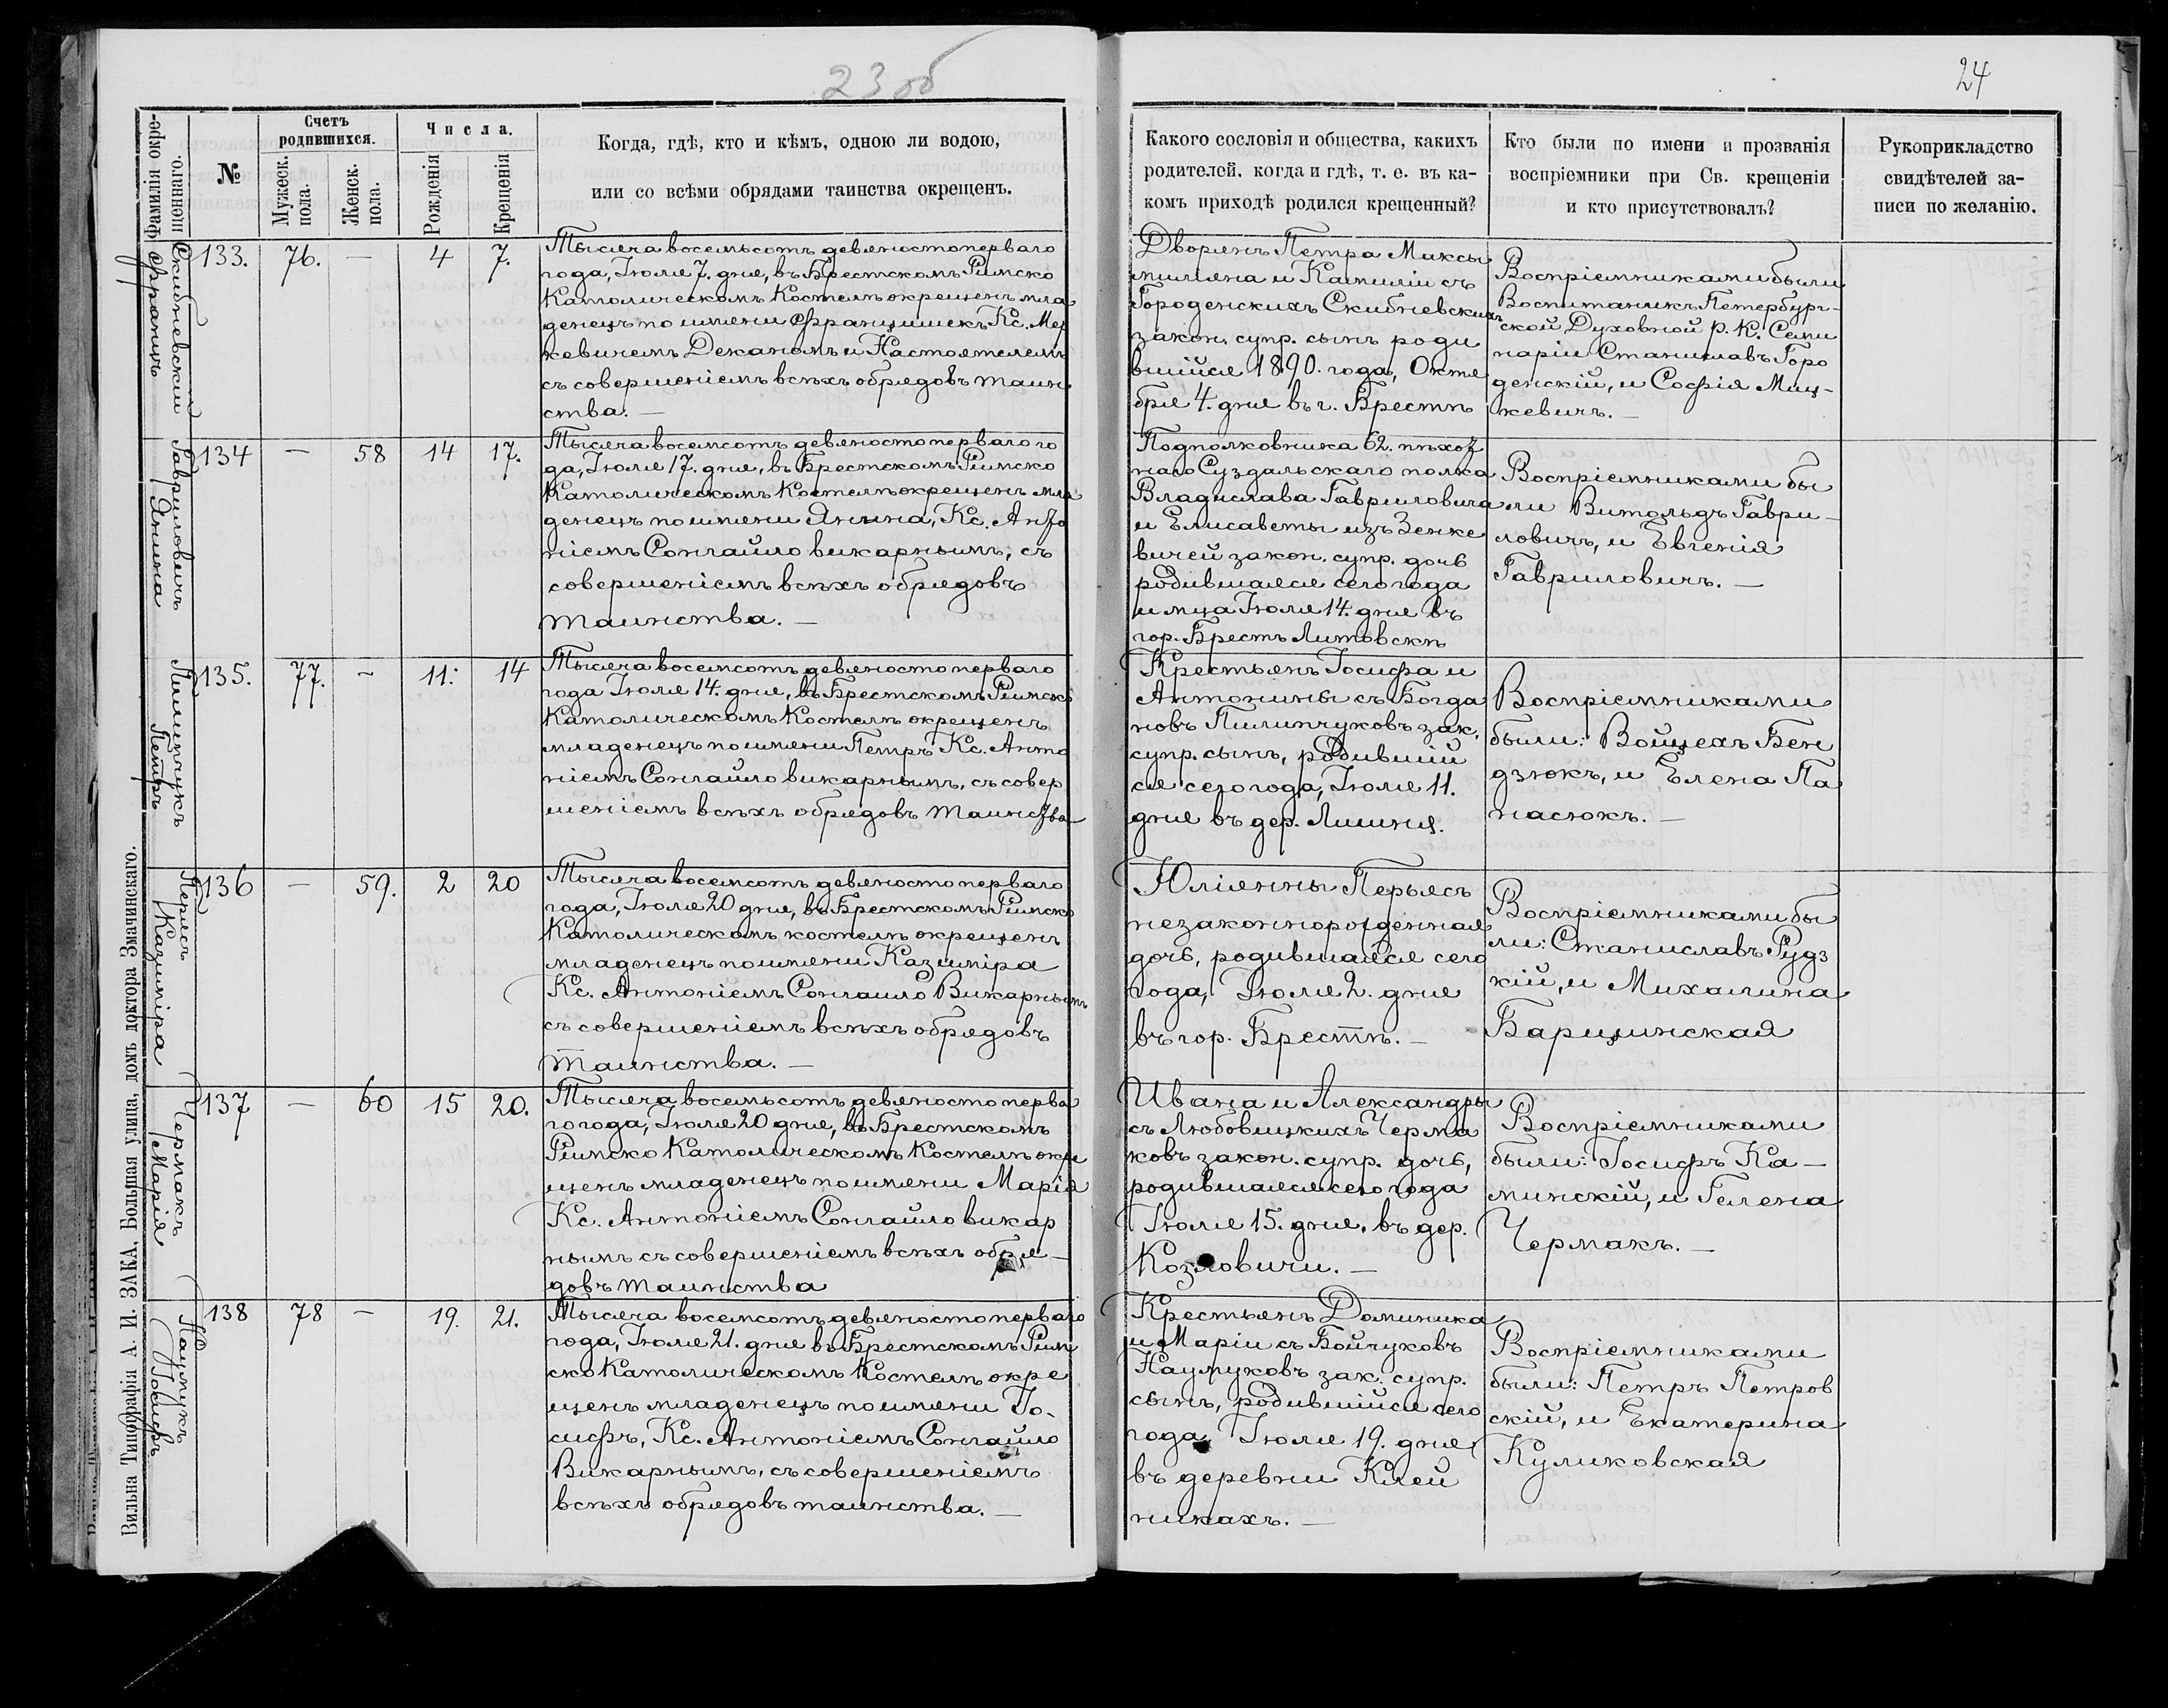 23 об
24
Фамилія окре-
щеннаго.
№
Счетъ
родившихся.
Мужеск.
пола.
Женск.
пола.
Числа.
Рожденія
Крещенія
Когда, гдѣ, кто и кѣмъ, одною ли водою,
или со всѣми обрядами таинства окрещенъ.
Какого сословія и общества, какихъ
родителей. когда и гдѣ, т. е. въ ка-
комъ приходѣ родился крещенный?
Кто были по имени и прозванія
воспріемники при Св. крещеніи
и кто присутствовалъ?
Рукоприкладство
свидѣтелей за-
писи по желанію.
Скибневскій
Францишекъ
133. 76. — 4 7.
Тысяча восемьсотъ девяносто перваго
года, Іюля 7. дня, въ Брестскомъ Римско
Католическомъ Костелѣ окрещенъ мла
денецъ по имени Францишекъ Кс. Мер
кевичемъ Деканомъ и Настоятелемъ
съ совершеніемъ всѣхъ обрядовъ таин
ства. —
Дворянъ Петра Макси
миліяна и Камиліи съ
Городенскихъ Скибневскихъ
закон. супр. сынъ роди
вшійся 1890. года, Октя
бря 4. дня въ г. Брестѣ
Воспріемниками были
Воспитаникъ Петербург-
ской Духовной Р. К. Семи
наріи Станиславъ Горо
денскій, и Софія Миц-
кевичъ. —
Гавриловичъ
Янина
134 — 58 14 17.
Тысяча восемсотъ девяносто перваго го
да, Іюля 17. дня, въ Брестскомъ Римско
Католическомъ Костелѣ окрещенъ мла
денецъ по имени Янина, Кс. Анто
ніемъ Сонгайло викарнымъ, съ
совершеніемъ всѣхъ обрядовъ
таинства. —
Подполковника 62. пѣхот
наго Суздальскаго полка
Владислава Гавриловича
и Елисаветы изъ Зенке
вичей закон. супр. дочь
родившаяся сего года
и мца Іюля 14. дня въ
гор. Брестъ Литовскѣ
Воспріемниками бы
ли Витольдъ Гаври-
ловичъ, и Евгенія
Гавриловичъ. —
Пилипчукъ
Петръ
135. 77. - 11. 14
Тысяча восемсотъ девяносто перваго
года Іюля 14. дня, въ Брестскомъ Римско
Католическомъ Костелѣ окрещенъ
младенецъ по имени Петръ Кс. Анто
ніемъ Сонгайло викарнымъ, съ совер
шеніемъ всѣхъ обрядовъ таинства
Крестьянъ Іосифа и
Антонины съ Богда
новъ Пилипчуковъ зак.
супр. сынъ, родившій
ся сего года, Іюля 11.
дня въ дер. Лишня.
Воспріемниками
были: Войцехъ Бен
дзюкъ, и Елена Па
насюкъ. —
Перьясъ
Казиміра
136 — 59. 2 20
Тысяча восемсотъ девяносто перваго
года, Іюля 20 дня, въ Брестскомъ Римско
Католическомъ костелѣ окрещенъ
младенецъ по имени Казиміра
Кс. Антоніемъ Сонгаило Викарнымъ
съ совершеніемъ всѣхъ обрядовъ
таинства. —
Юліянны Перьясъ
незаконнорожденная
дочь, родившаяся сего
года, Іюля 2. дня
въ гор. Брестѣ. —
Воспріемниками бы
ли: Станиславъ Рудз
кій, и Михалина
Барщинская
Чермакъ
Марія
137 — 60 15 20.
Тысяча восемьсотъ девяносто перва
го года, Іюля 20 дня, въ Брестскомъ
Римско Католическомъ Костелѣ окре
щенъ младенецъ по имени Марія
Кс. Антоніемъ Сонгайло викар
нымъ съ совершеніемъ всѣхъ обря-
довъ таинства
Ивана и Александры
съ Любовицкихъ Черма
ковъ закон. супр. дочь,
родившаяся сего года
Іюля 15. дня, въ дер.
Козловичи. —
Воспріемниками
были: Іосифъ Ка-
минскій, и Гелена
Чермакъ. —
Наумукъ
Іосифъ
138 78 — 19. 21.
Тысяча восемсотъ девяносто перваго
года, Іюля 21. дня въ Брестскомъ Рим
ско Католическомъ Костелѣ окре
щенъ младенецъ по имени Іо-
сифъ, Кс. Антоніемъ Сонгайло
Викарнымъ, съ совершеніемъ
всѣхъ обрядовъ таинства. —
Крестьянъ Доминика
и Маріи съ Бойчуковъ
Наумуковъ зак. супр.
сынъ, родившійся сего
года, Іюля 19. дня
въ деревни Клей
никахъ. —
Воспріемниками
были: Петръ Петров
скій, и Екатерина
Куликовская
Вильна Типографія А. И. ЗАКА, Большая улица, домъ доктора Змачинскаго.